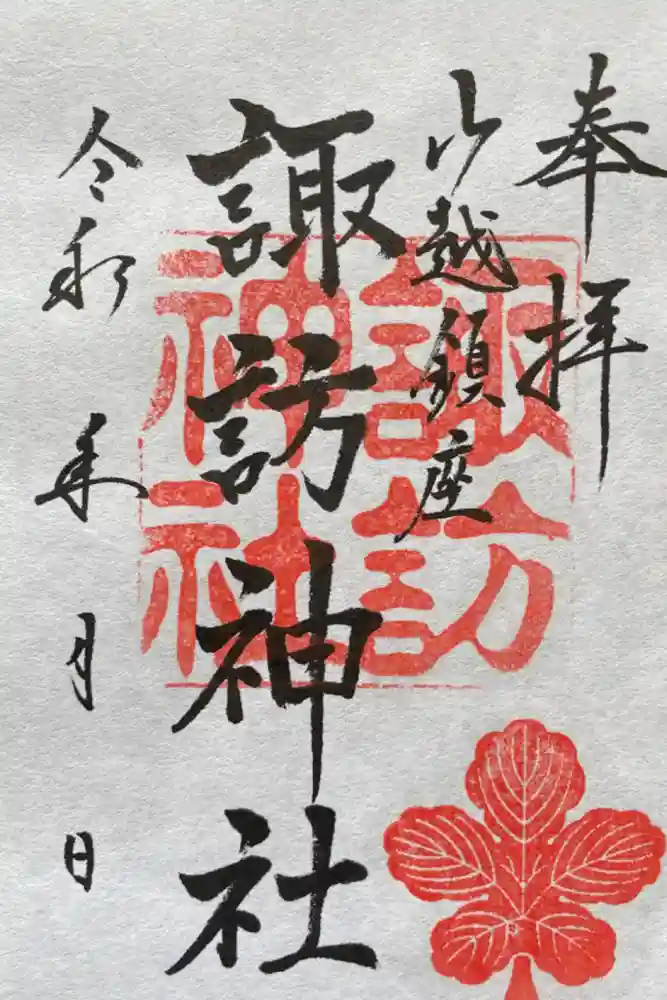 奉拝
山越鎮座
諏訪神社
諏訪
神社
令和 年 月 日